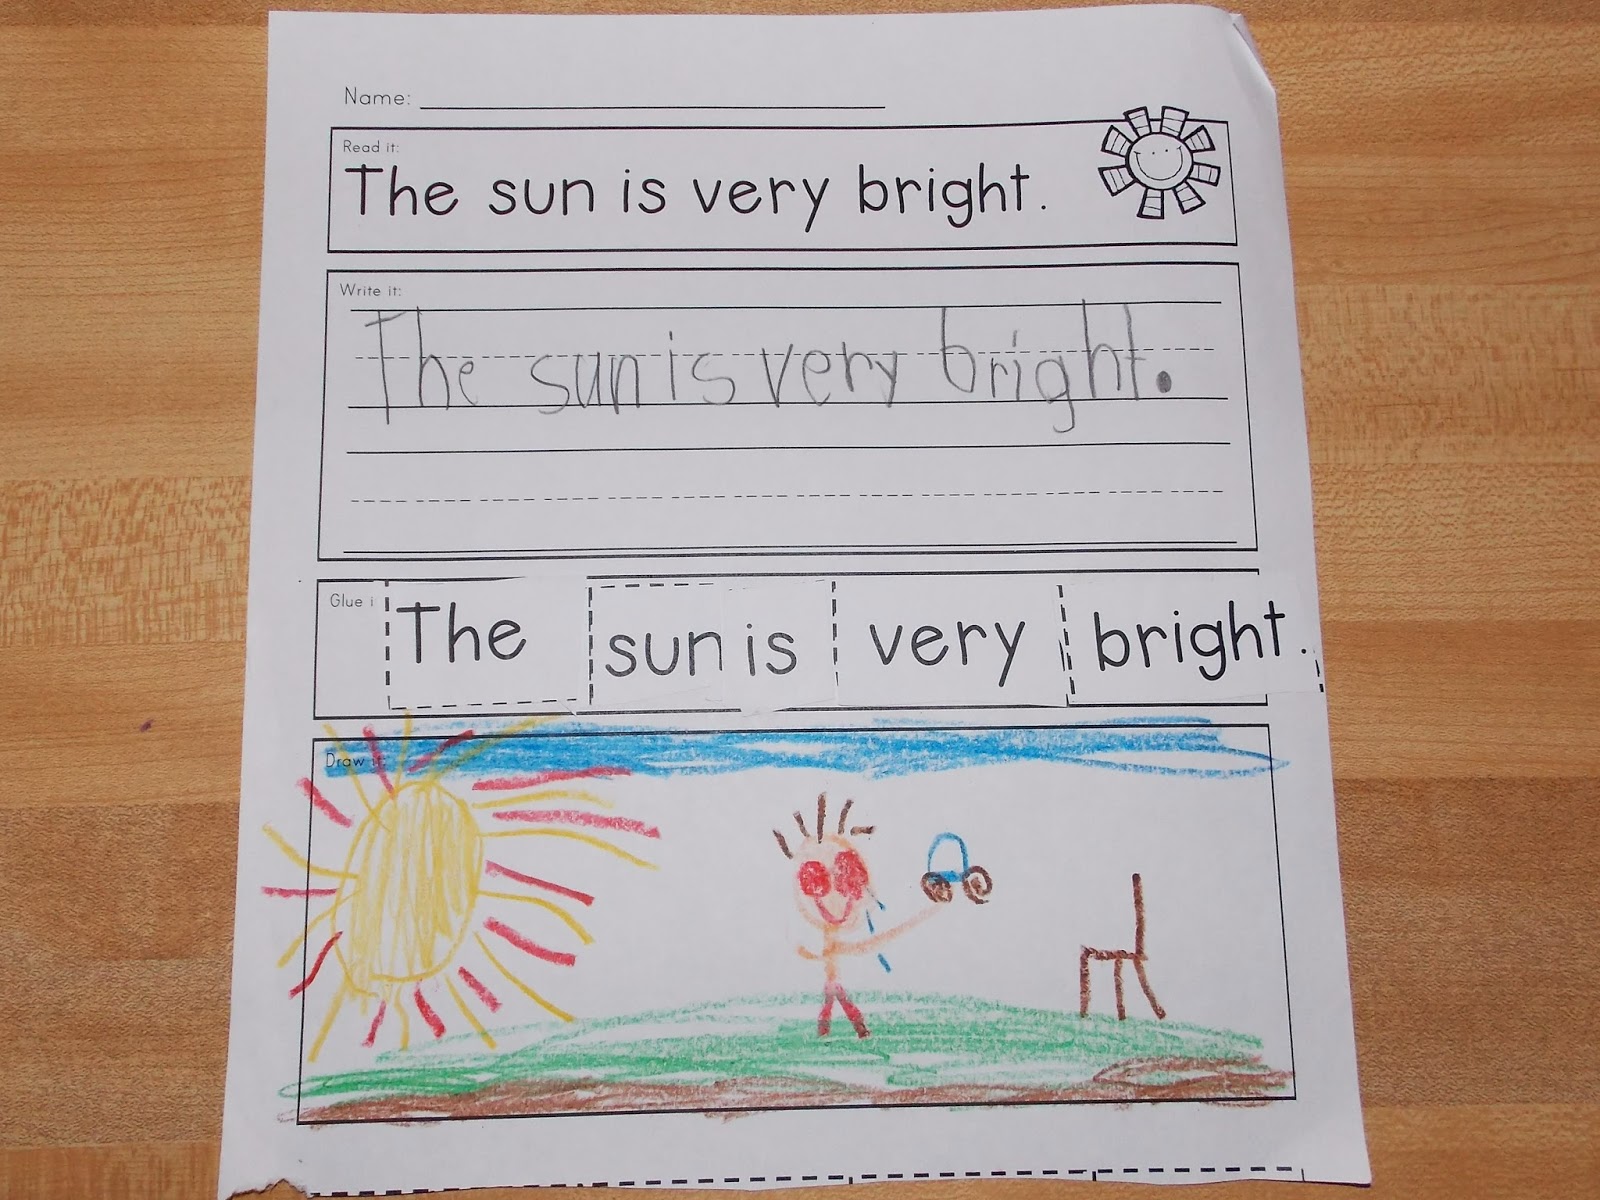 Name:
Read it:
The sun is very bright.
Write it:
The sun is very bright.
Glue i
The sun is very bright.
Draw it: